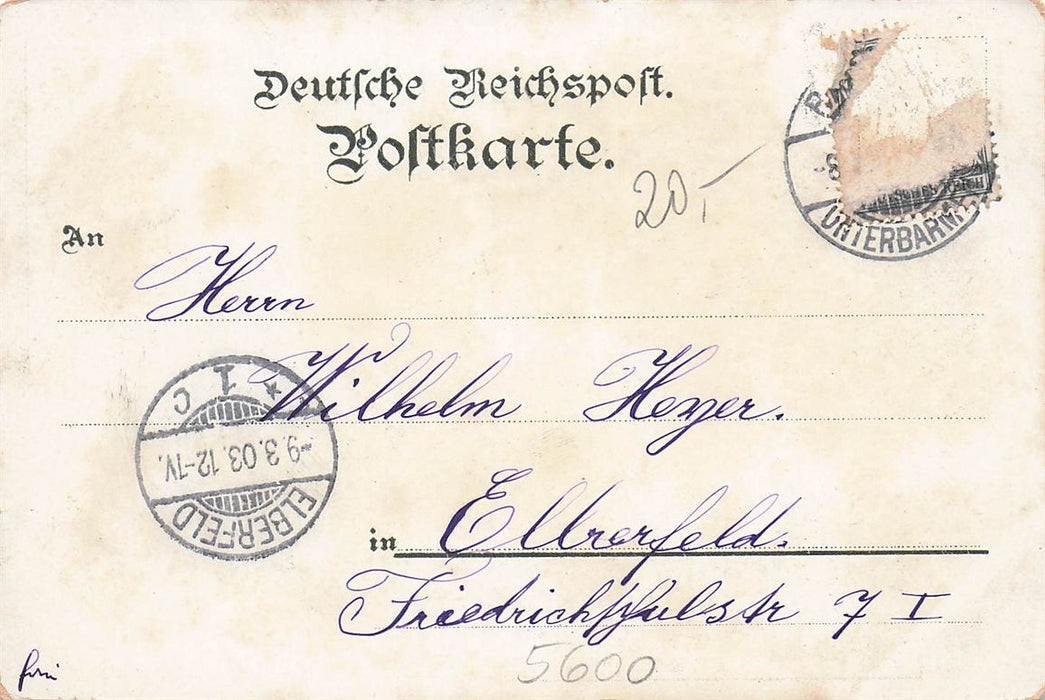 Deutsche Reichspost.
Postkarte.
20,-
UNTERBARM
An
Herrn
Wilhelm Heyer.
* 1 C
-9.3.03.12-1V.
ELBERFELD
in Elberfeld.
Friedrichschulstr 7 I
5600